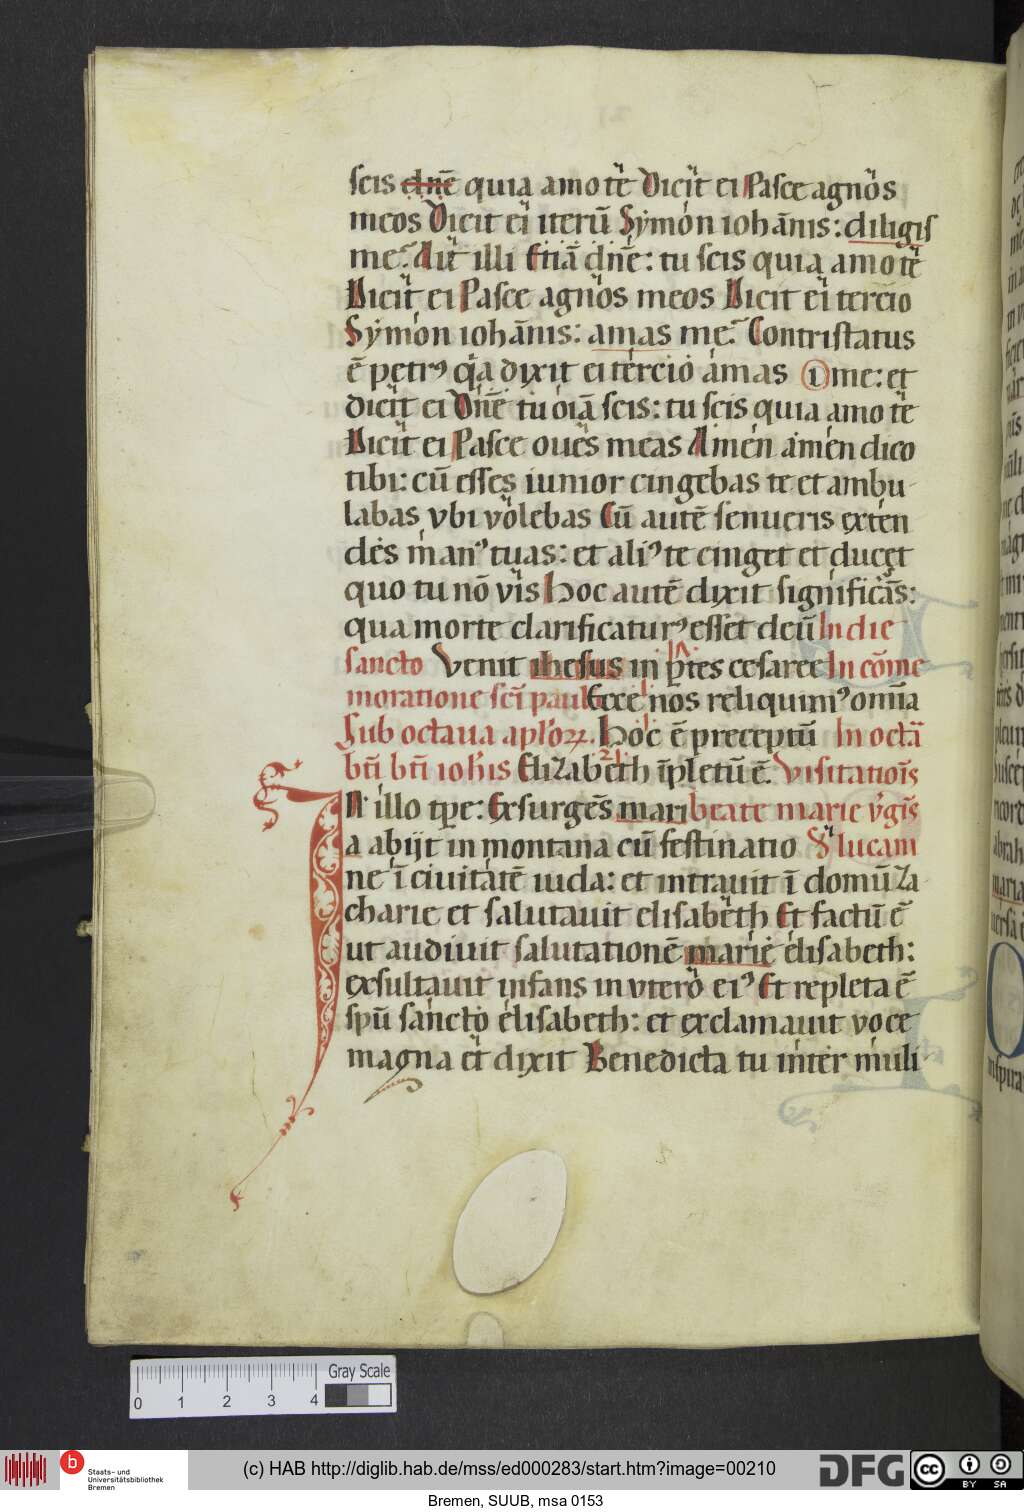 scis dn̄e quia amo te Dicit ei Pasce agnos
meos Dicit ei iterū Sẏmon iohānis: diligis
me? Ait illi Etiā dn̄e: tu scis quia amo te
Dicit ei Pasce agnos meos Dicit ei tercio
Sẏmon iohānis: amas me? Contristatus
ē petrꝰ q̇a dixit ei tercio amas me: et
dicit ei Dn̄e tu oīa scis: tu scis quia amo te
Dicit ei Pasce oues meas Amen amen dico
tibi: cū esses iunior cingebas te et ambu
labas vbi volebas Cū autē senueris exten
des manꝰ tuas: et aliꝰ te cinget et ducet
quo tu nō vis Hoc autē dixit significās:
qua morte clarificaturꝰ esset deū In die
sancto Venit ihesus in p̄tes cesaree In cōme
moratione sc̄i pauli Ecce nos reliquimꝰ omīa
Sub octaua apl̄oꝝ. Hoc ē preceptū In octā
bt̄i ioh̄is Elizabeth īpletū ē. Visitatiōis
N illo tp̄e: Exsurgēs mari beate marie v̄gīs
a abijt in montana cū festinatio S. lucam
ne ī ciuitatē iuda: et intrauit ī domū za
charie et salutauit elisabeth Et factū ē
ut audiuit salutationē marie elisabeth:
exsultauit infans in vtero eiꝰ Et repleta ē
spū sancto elisabeth: et exclamauit voce
magna et dixit Benedicta tu inter muli
0 1 2 3 4 Gray Scale
b Staats- und Universitätsbibliothek Bremen
(c) HAB http://diglib.hab.de/mss/ed000283/start.htm?image=00210
DFG cc BY SA
Bremen, SUUB, msa 0153